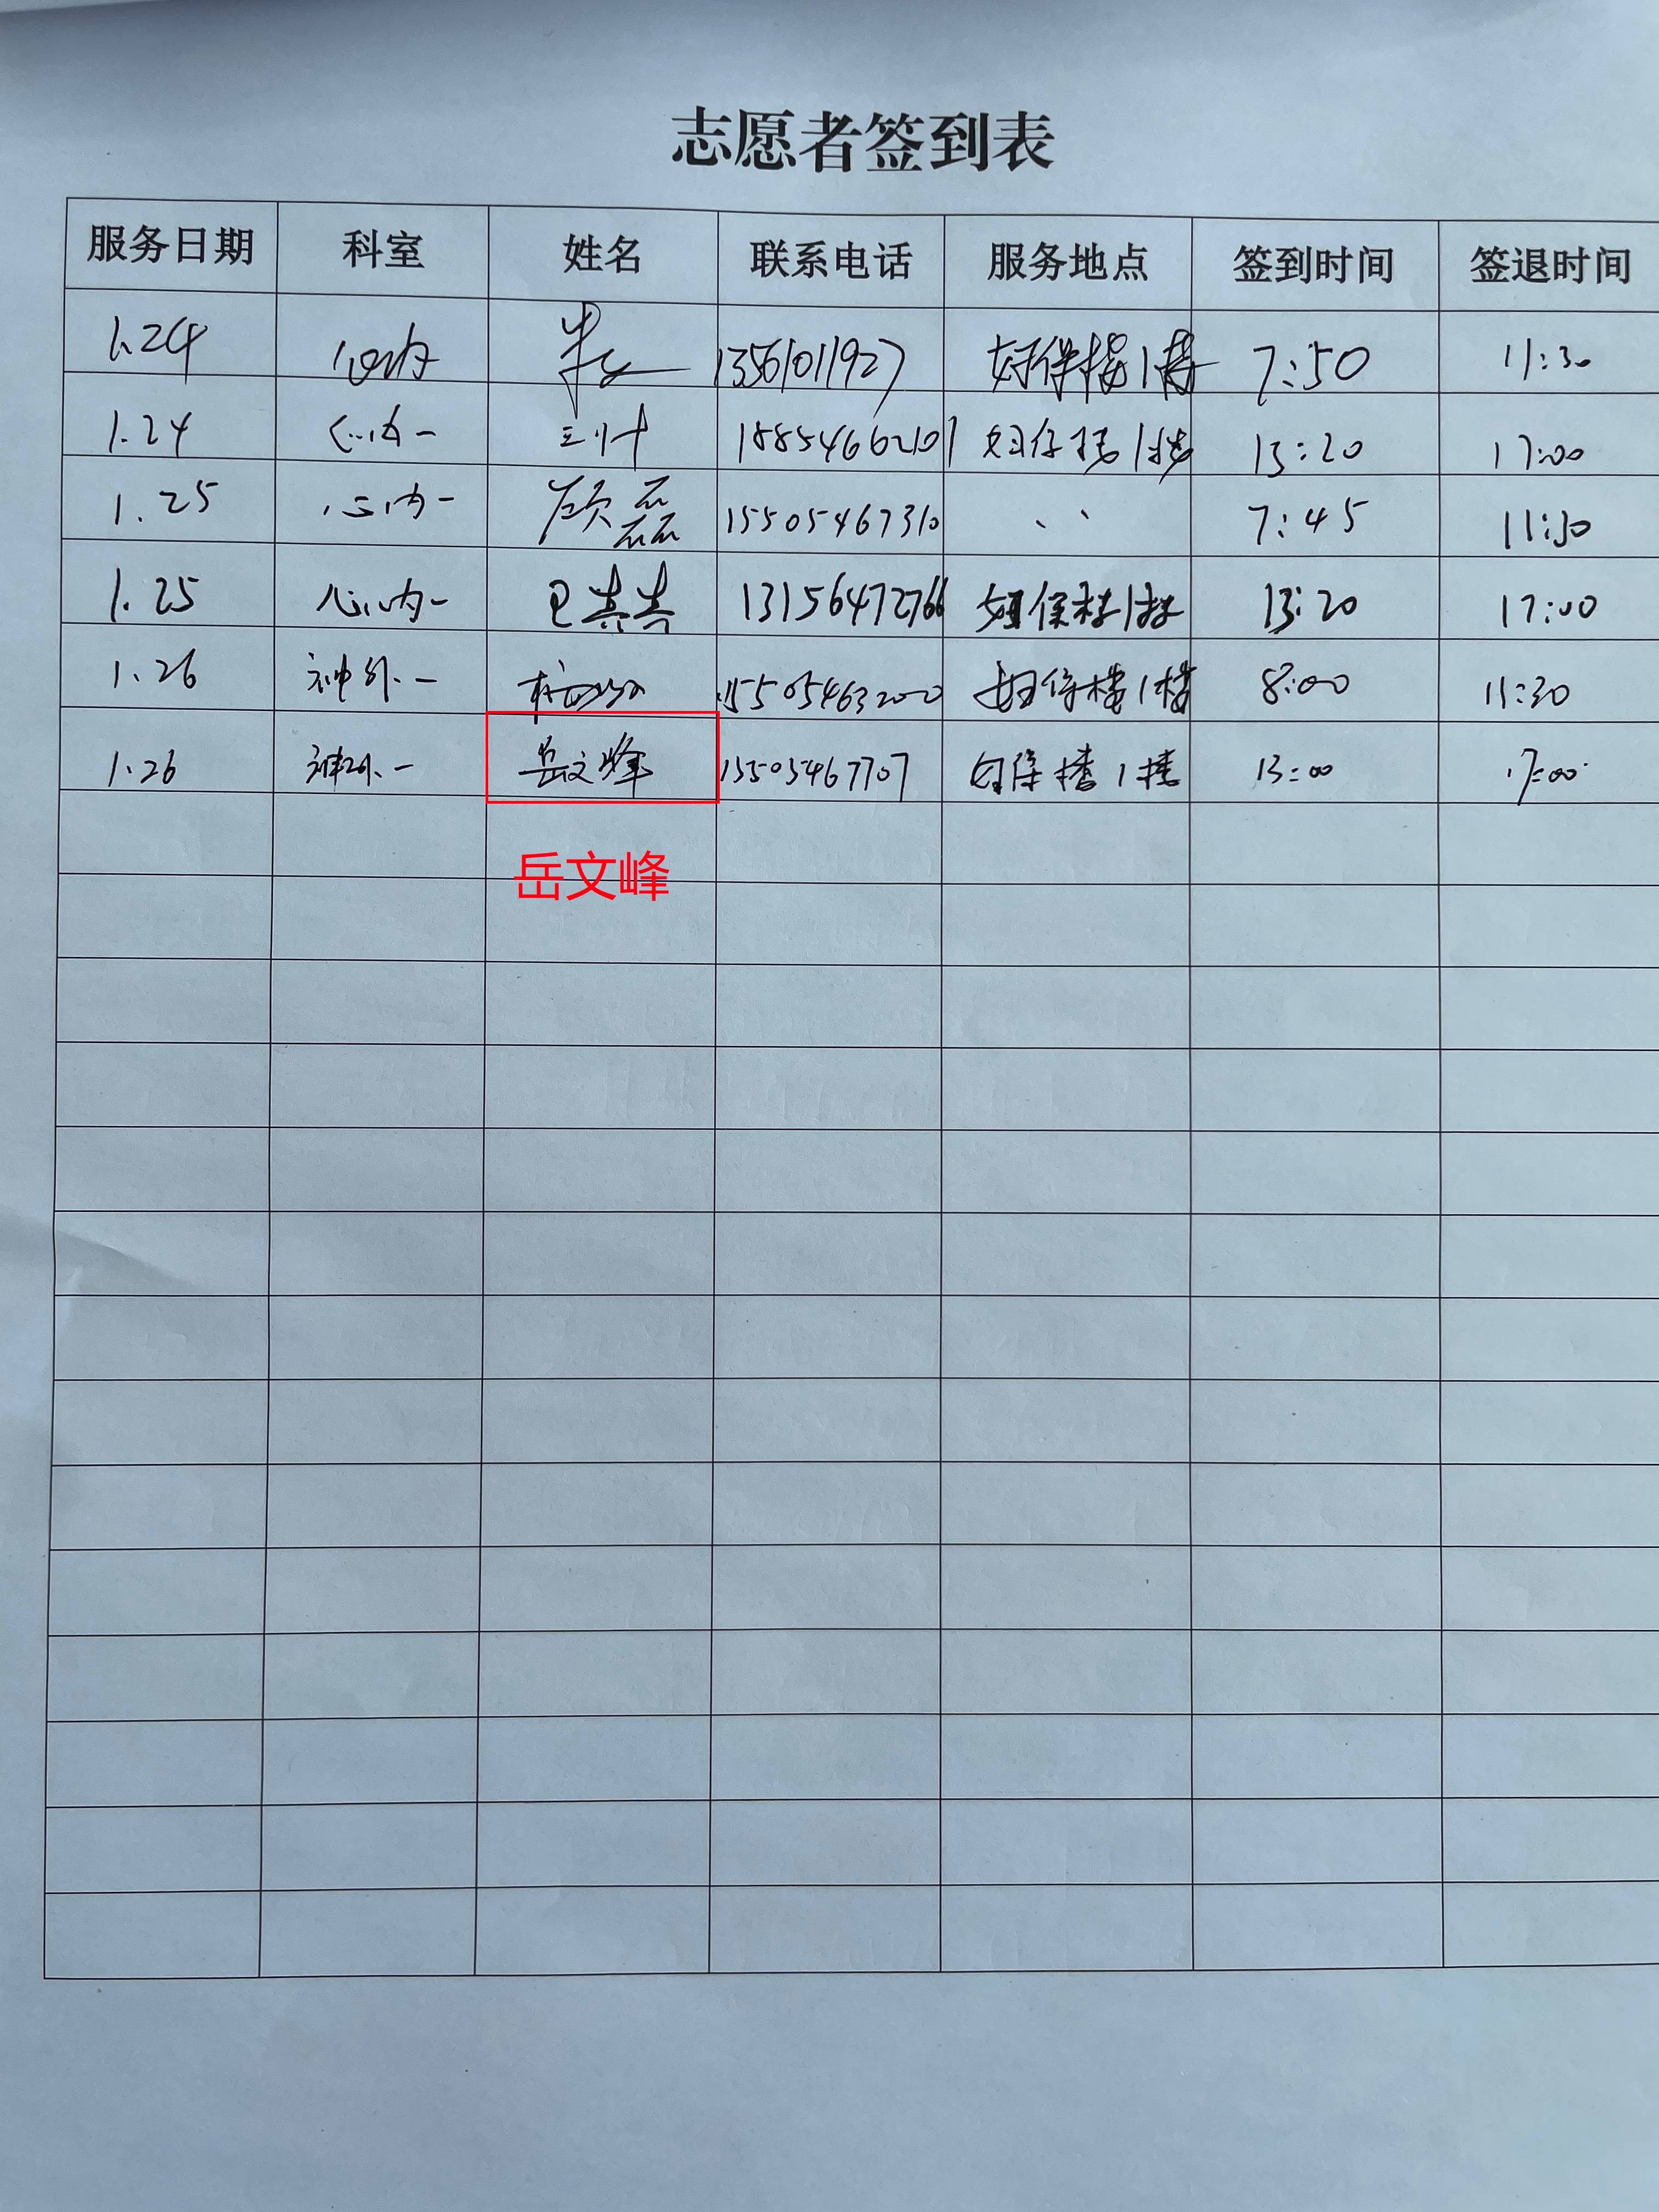 志愿者签到表
服务日期 科室 姓名 联系电话 服务地点 签到时间 签退时间
1.24 心内 13561011927 妇保楼1楼 7:50 11:30
1.24 心内一 18854662101 妇保楼1楼 13:20 17:00
1.25 心内一 顾磊 15505467310 、、 7:45 11:30
1.25 心内一 巴真真 13156472766 妇保楼1楼 13:20 17:00
1.26 神外一 15505463200 妇保楼1楼 8:00 11:30
1.26 神外一 岳文峰 15505467707 妇保楼1楼 13:00 17:00
岳文峰